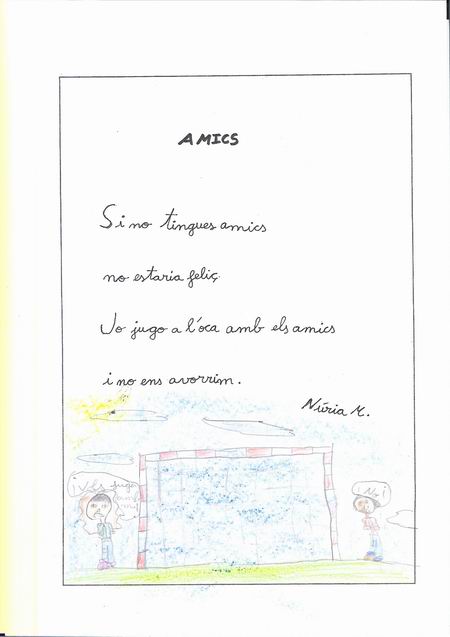 AMICS
Si no tingues amics
no estaria feliç.
Jo jugo a l'oca amb els amics
i no ens avorrim.
Núria M.
¡No!